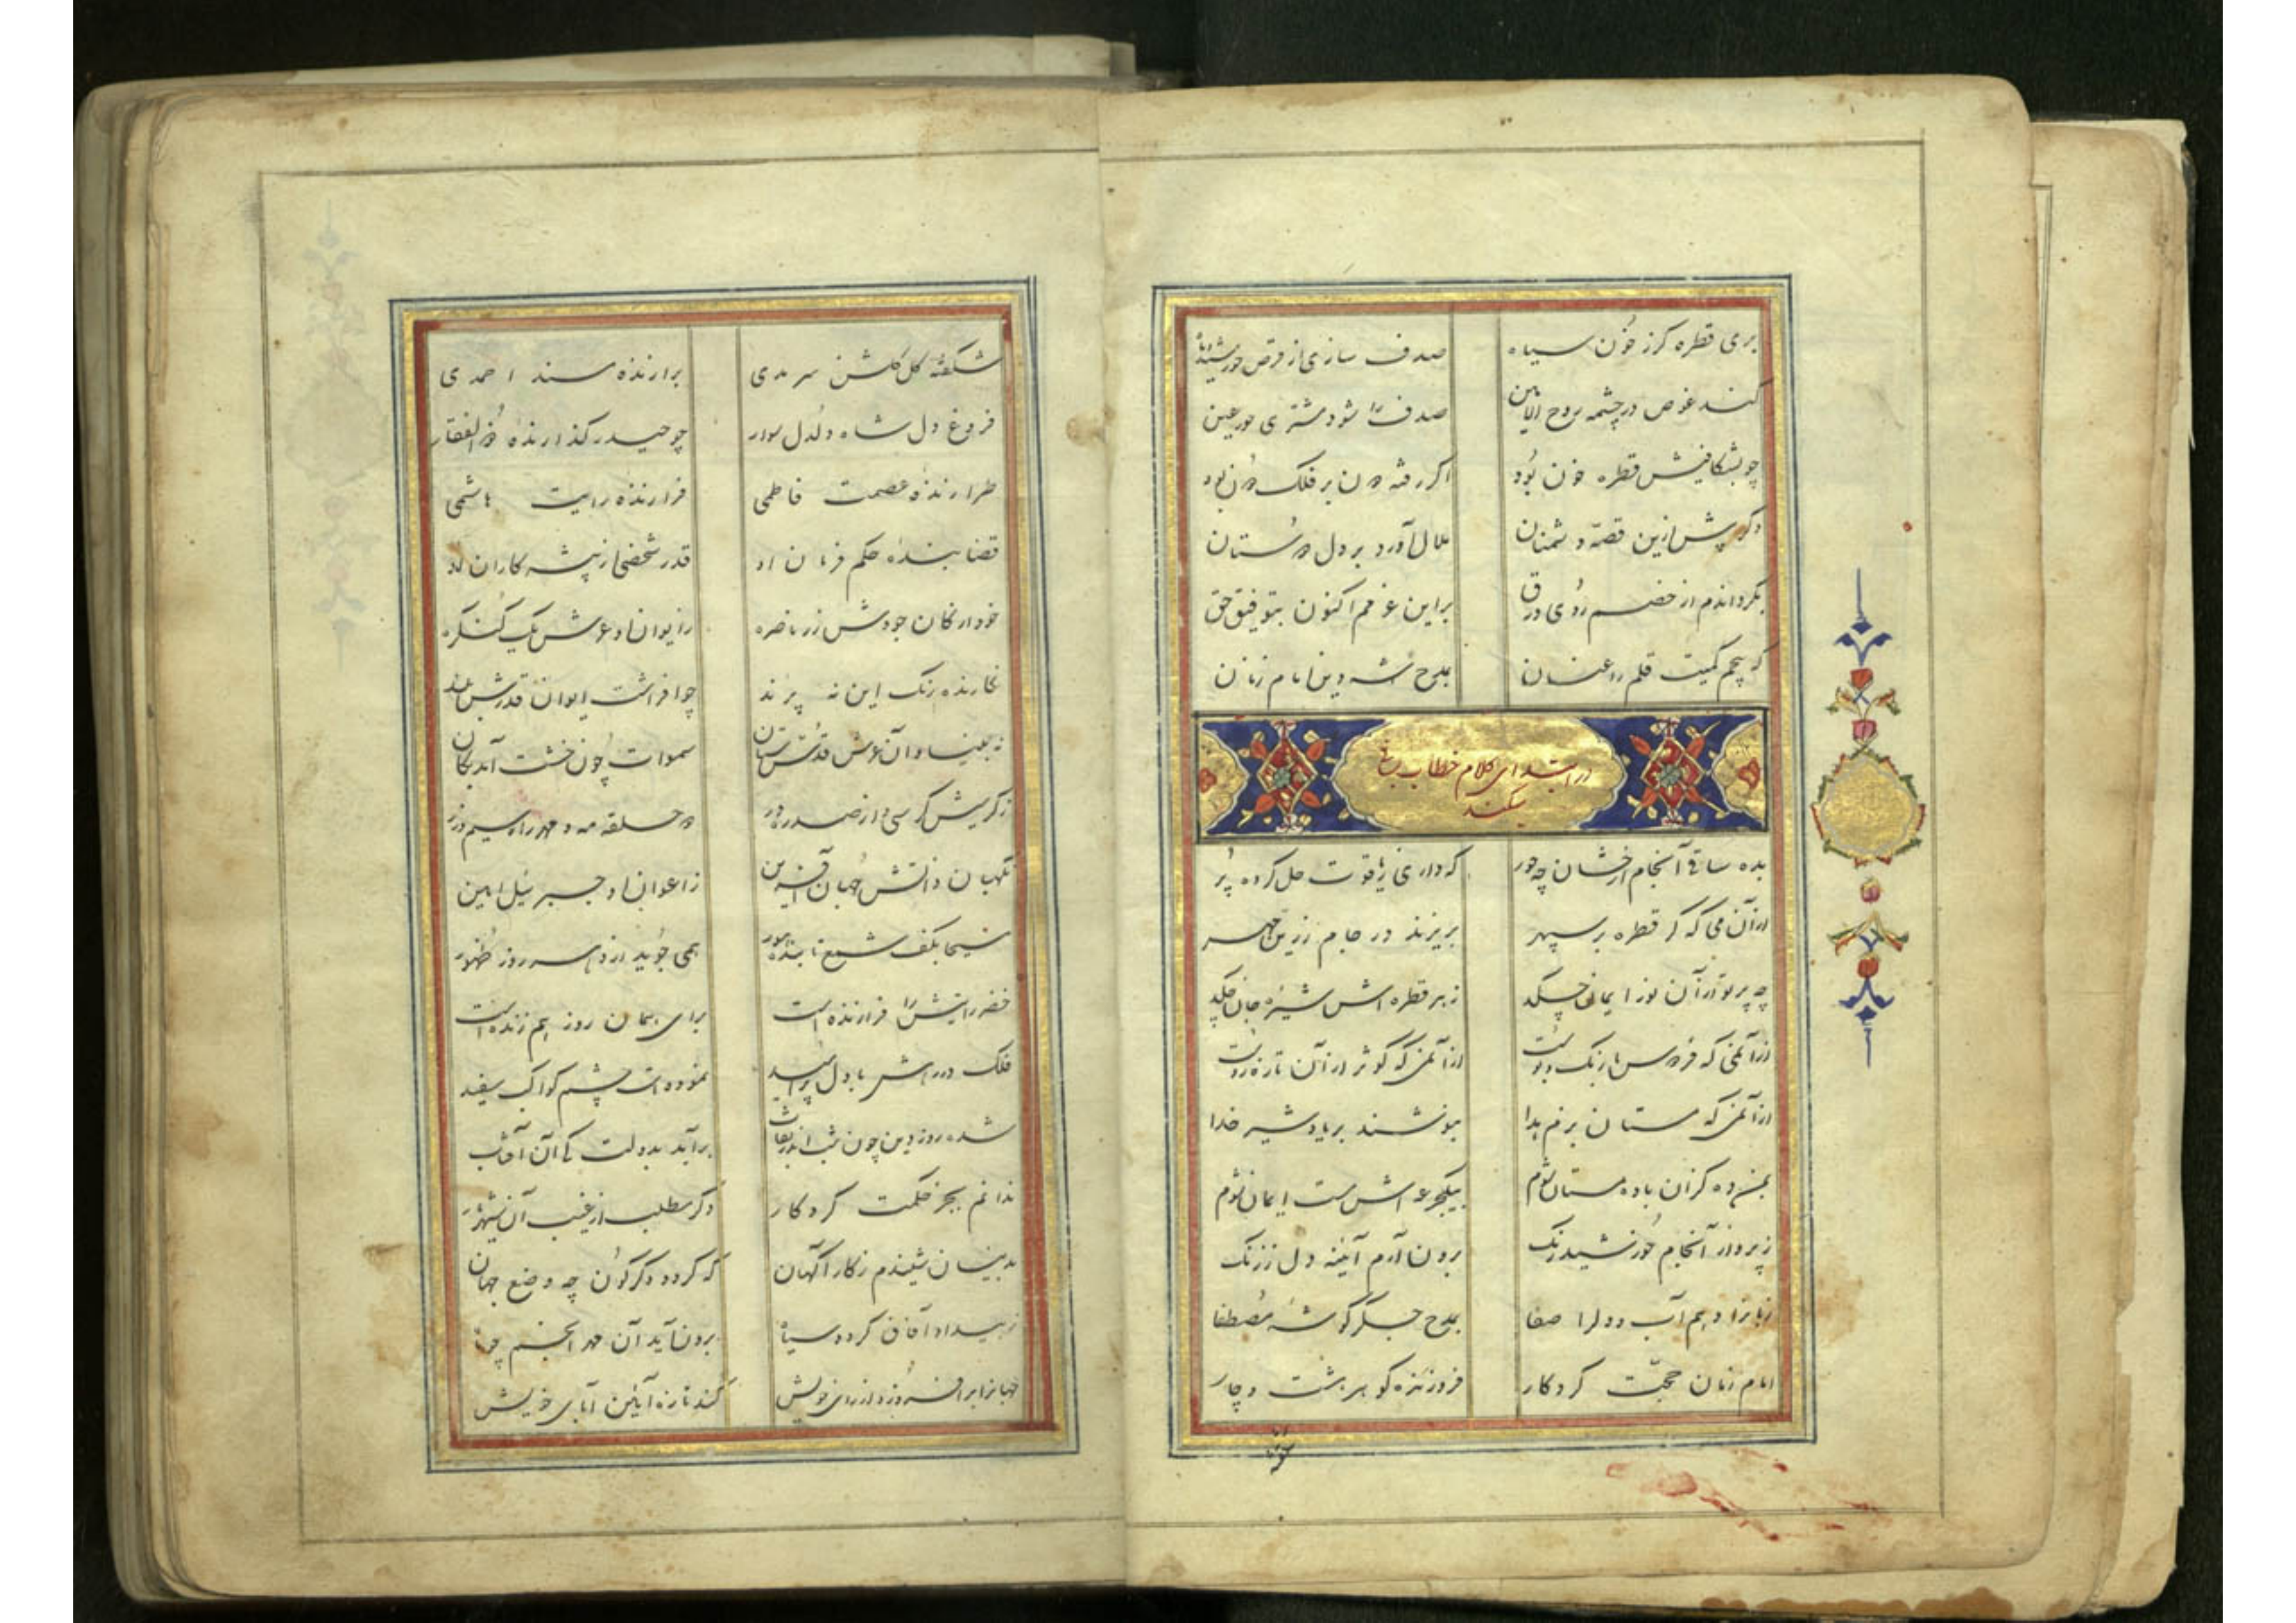 بری قطره کرز خون سیاه صدف سازی از قرص خورشید
کند غوص در چشمه روح الامین صدف را شود مشتری حور عین
چو بشکافیش قطره خون بود اگر رفته بر فلک
دگر پیش ازین قصه دشمنان ملال آورد بر دل دوستان
بگردانم از خصم روی ورق براین عزمم اکنون بتوفیق حق
که پیچم کمیت قلم را عنان بمدح شه دین امام زمان
در ابتدای کلام خطاب
میکند
بده ساقی آنجام رخشان چه خور که داری ز یاقوت حل کرده پر
از آن می که گر قطره بر سپهر بریزند در جام زرین مهر
چه پرتو از آن نور ایمان چکد زهر قطره اش شیره جان چکد
از آنمی که فردوس با رنگ و بوست از آنمی که کوثر از آن تازه روست
از آنمی که مستان بزم هدا بنوشند بر یاد شیر خدا
بمن ده کزان باده مستان شوم بیکجرعه اش مست ایمان شوم
ز پرداز آنجام خورشید رنگ برون آرم آئینه دل ز زنگ
زبانرا دهم آب و دلرا صفا بمدح جگر گوشه مصطفا
امام زمان حجت کردکار فروزنده کوهر هشت و چار
شکفته گل گلشن سرمدی برازنده مسند احمدی
فروغ دل شاه دلدل سوار چو حیدر گذارنده ذوالفقار
طرازنده عصمت فاطمی فرازنده رایت هاشمی
قضا بنده حکم فرمان او قدر شخصی از پیشه کاران او
خود ارکان جودش زر ناصره ز ایوان او عرش یک کنگره
نگارنده رنگ این نه پرند چو افراشت ایوان قدرش بلند
نه بنیاد آن عرش قدسی ستان سموات چون خشت آمد بکان
ز کریش کرسی و از صدر در دو حلقه مه و مهر راه سیم و زر
نگهبان ذاتش جهان آفرین ز اعوان او جبرئیل امین
مسیحا بکف شمع تابنده هور همی جوید از وی سه روز ظهور
خضر رایتش را فرازنده است برای همان روز هم زنده است
فلک در رهش با دل پر امید نموده است چشم کواکب سفید
شده روز دین چون شب اندر نقاب برآید بدولت کی آن آفتاب
ندانم بجز حکمت کردکار دگر مطلب از غیب آن شهریار
بدینسان شنیدم ز کار آگهان که گردد دگرگون چه وضع جهان
ز بیداد آفاق گردد سیاه برون آید آن مهر انجم سپاه
جهانرا برافروزد از رای خویش کند تازه آیین آبای خویش